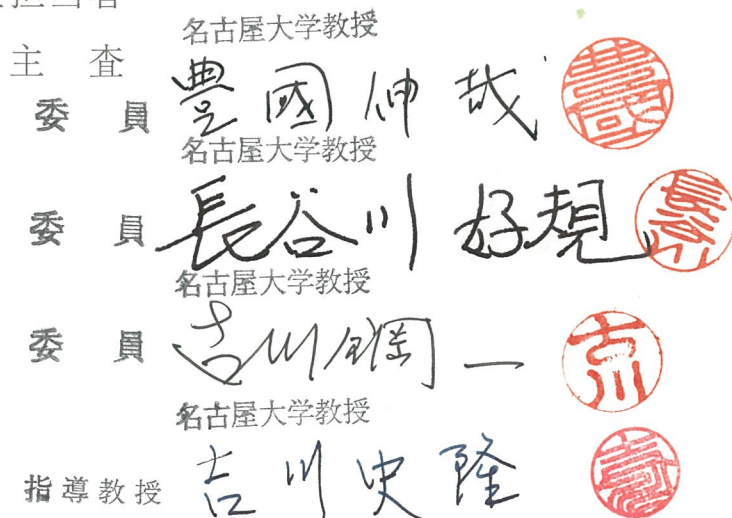 担当者
名古屋大学教授
主 査
委 員 豊國伸哉
名古屋大学教授
委 員 長谷川好規 長谷川
名古屋大学教授
委 員 古川鋼一 古川
名古屋大学教授
指導教授 吉川史隆